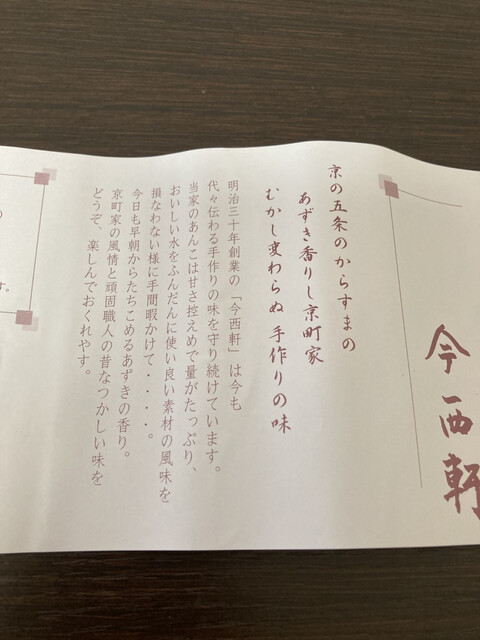 今西軒
京の五条のからすまの
あずき香りし京町家
むかし変わらぬ 手作りの味
明治三十年創業の「今西軒」は今も
代々伝わる手作りの味を守り続けています。
当家のあんこは甘さ控えめで量がたっぷり、
おいしい水をふんだんに使い良い素材の風味を
損なわない様に手間暇かけて・・・・。
今日も早朝からたちこめるあずきの香り。
京町家の風情と頑固職人の昔なつかしい味を
どうぞ、楽しんでおくれやす。
の
す。